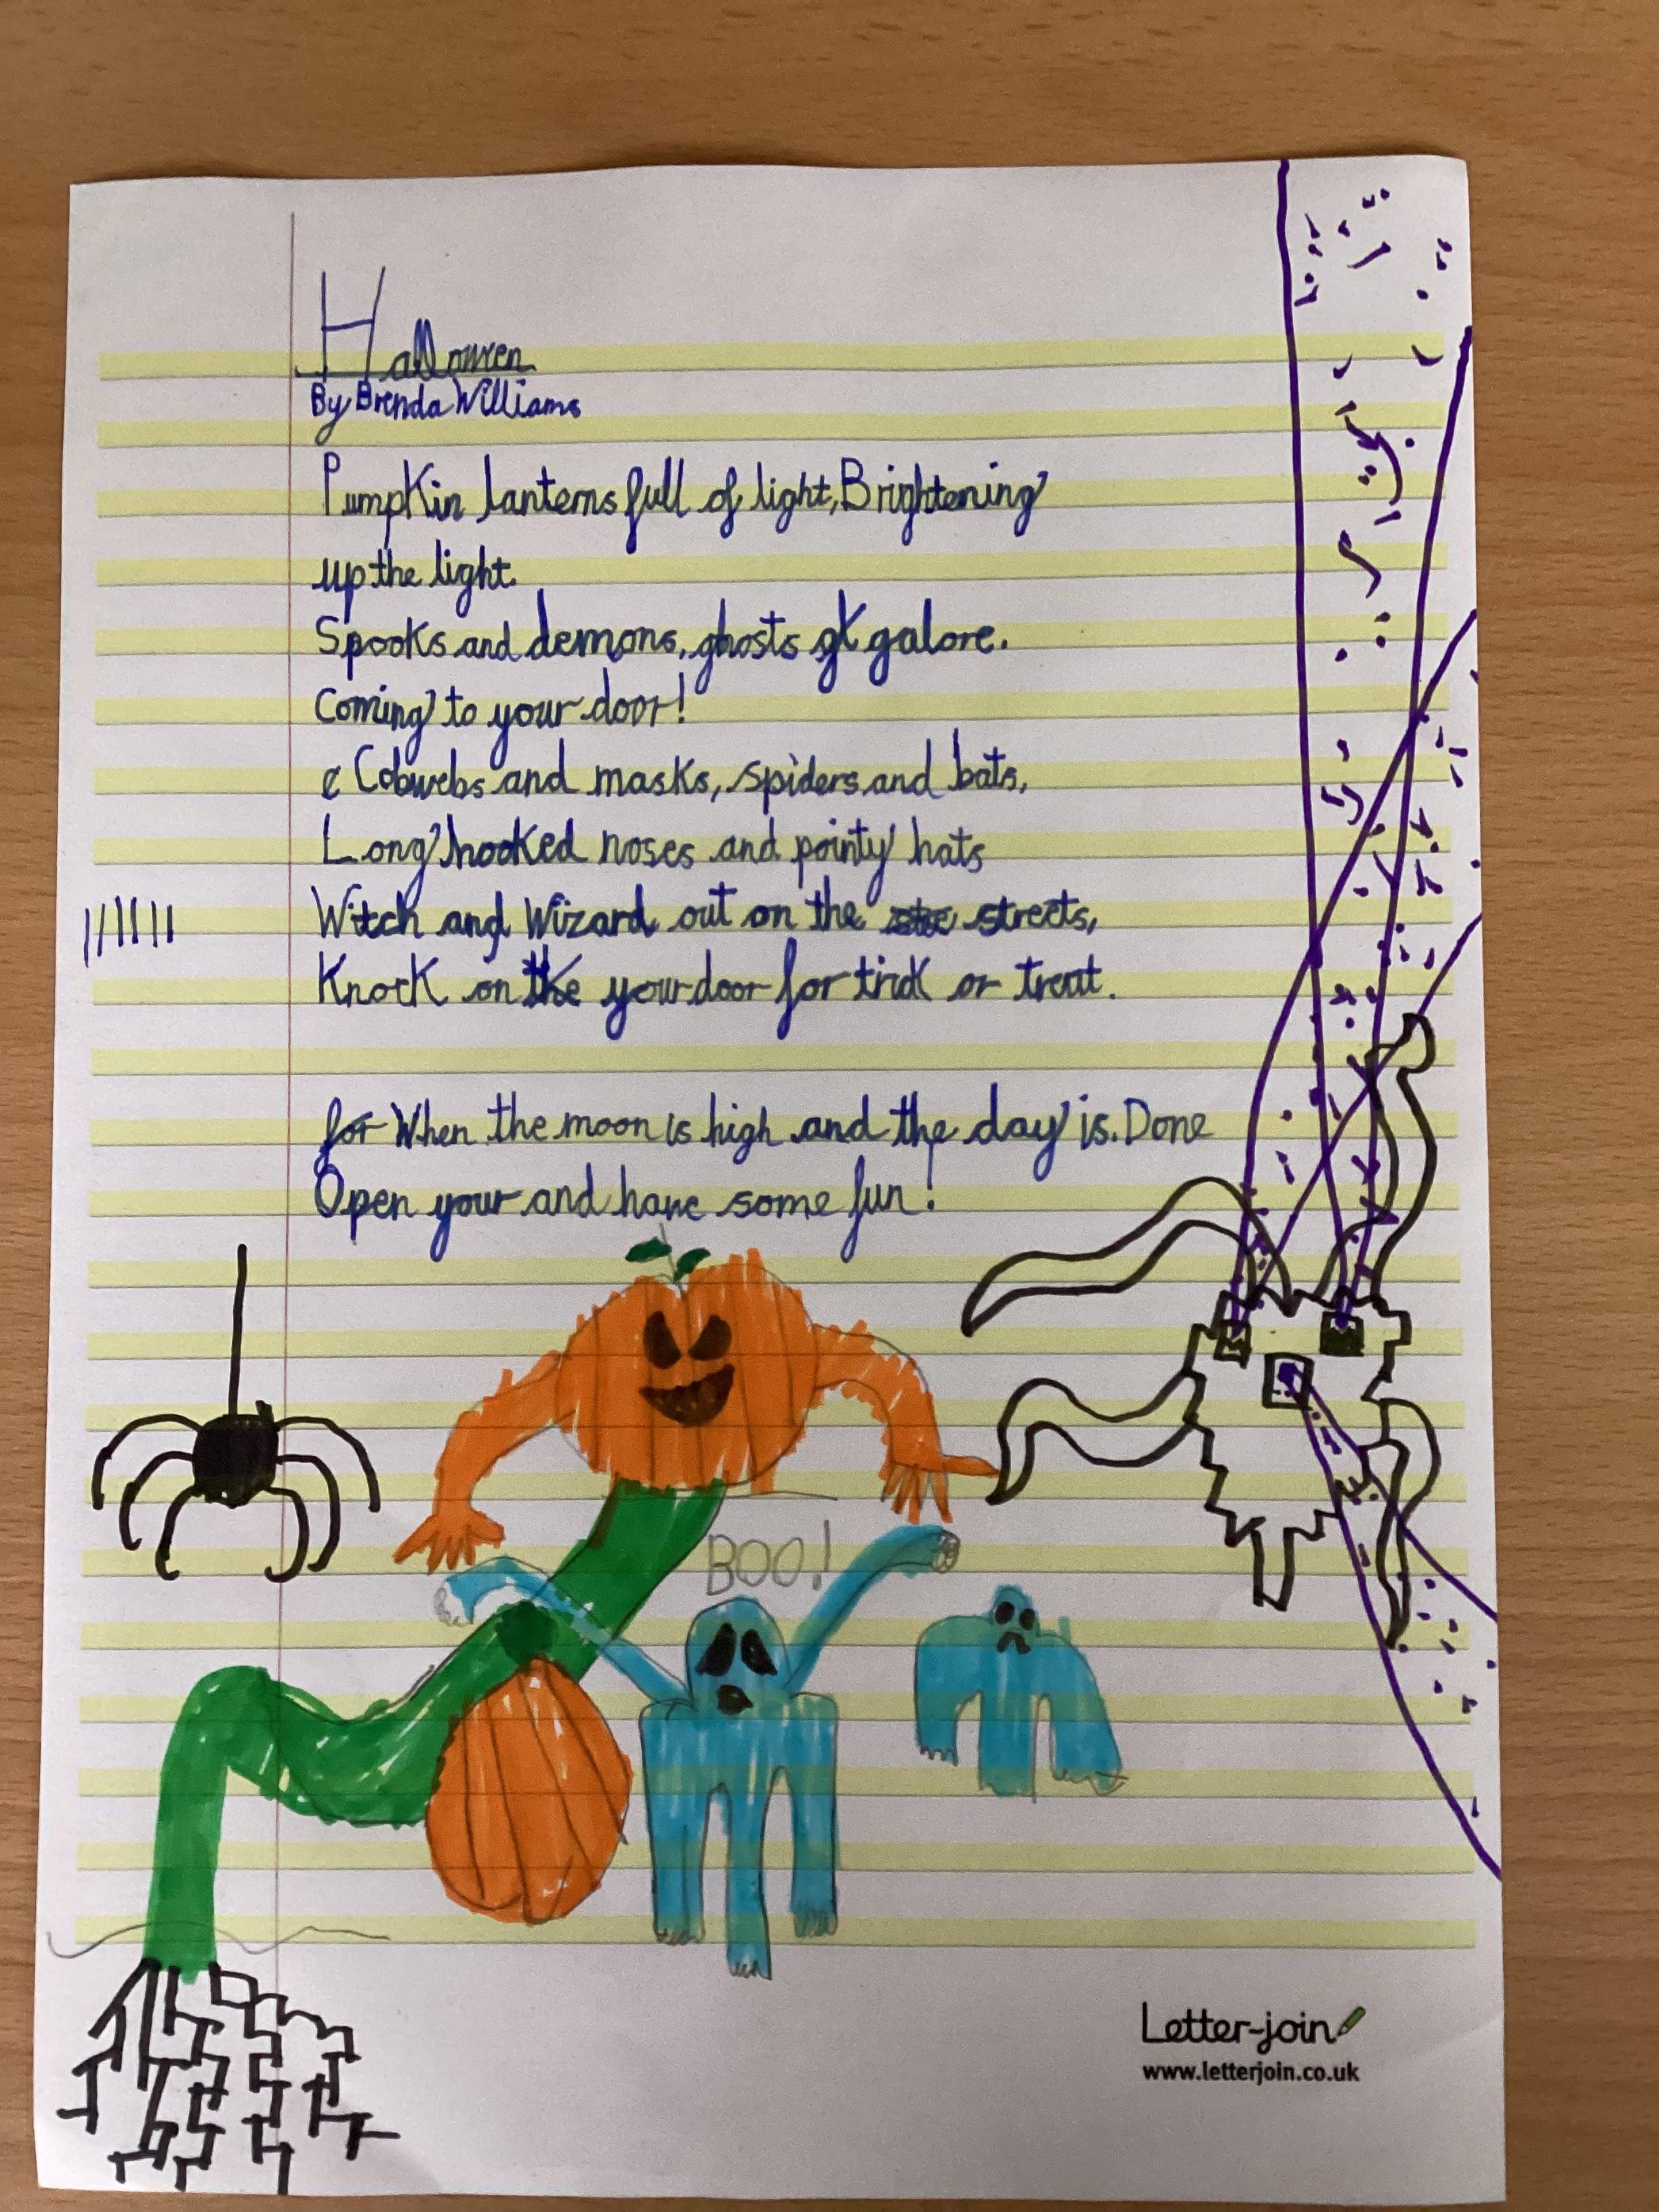 Halloween
By Brenda Williams
Pumpkin lanterns full of light, Brightening
up the light.
Spooks and demons, ghosts galore.
Coming to your door!
Cobwebs and masks, spiders and bats,
Long hooked noses and pointy hats
Witch and Wizard out on the streets,
Knock on the your door for trick or treat.
for When the moon is high and the day is. Done
Open your and have some fun!
BOO!
Letter-join
www.letterjoin.co.uk